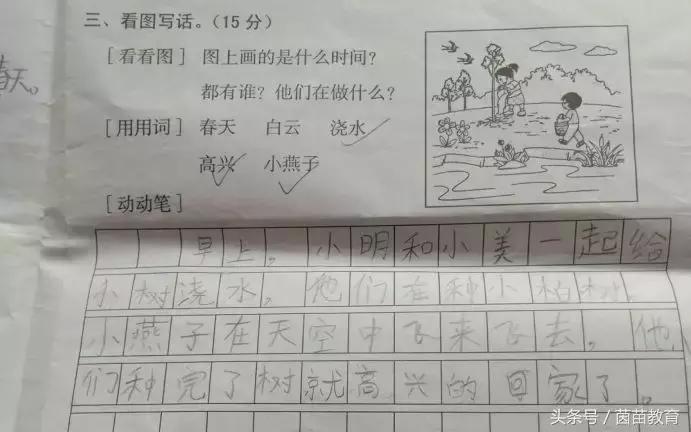 三、看图写话。(15分)
[看看图] 图上画的是什么时间?
都有谁? 他们在做什么?
[用用词] 春天 白云 浇水
高兴 小燕子
[动动笔]
天。
早上,小明和小美一起给
小树浇水,他们在种小柏树,
小燕子在天空中飞来飞去,他
们种完了树就高兴的回家了。
头条号/茵苗教育